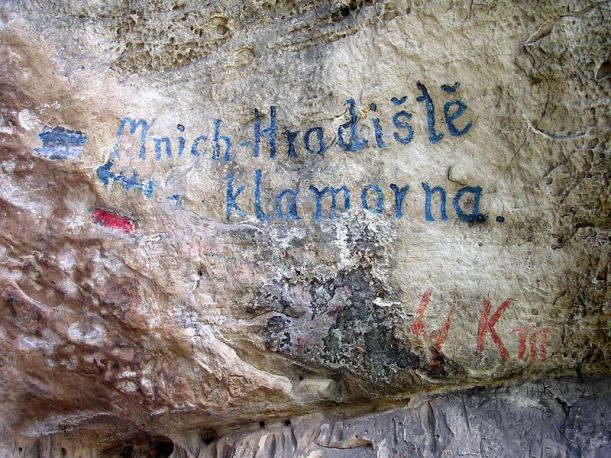 Mnich-Hradiště
klamorna.
Km